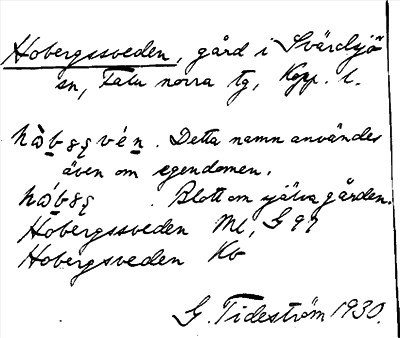 Hobergssveden, gård i Svärdsjö
sn, Falu norra tg, Kopp. l.
Detta namn användes
även om egendomen.
Blott om själva gården.
Hobergssveden Ml, G 97
Hobergsveden Kb
G. Tideström 1930.